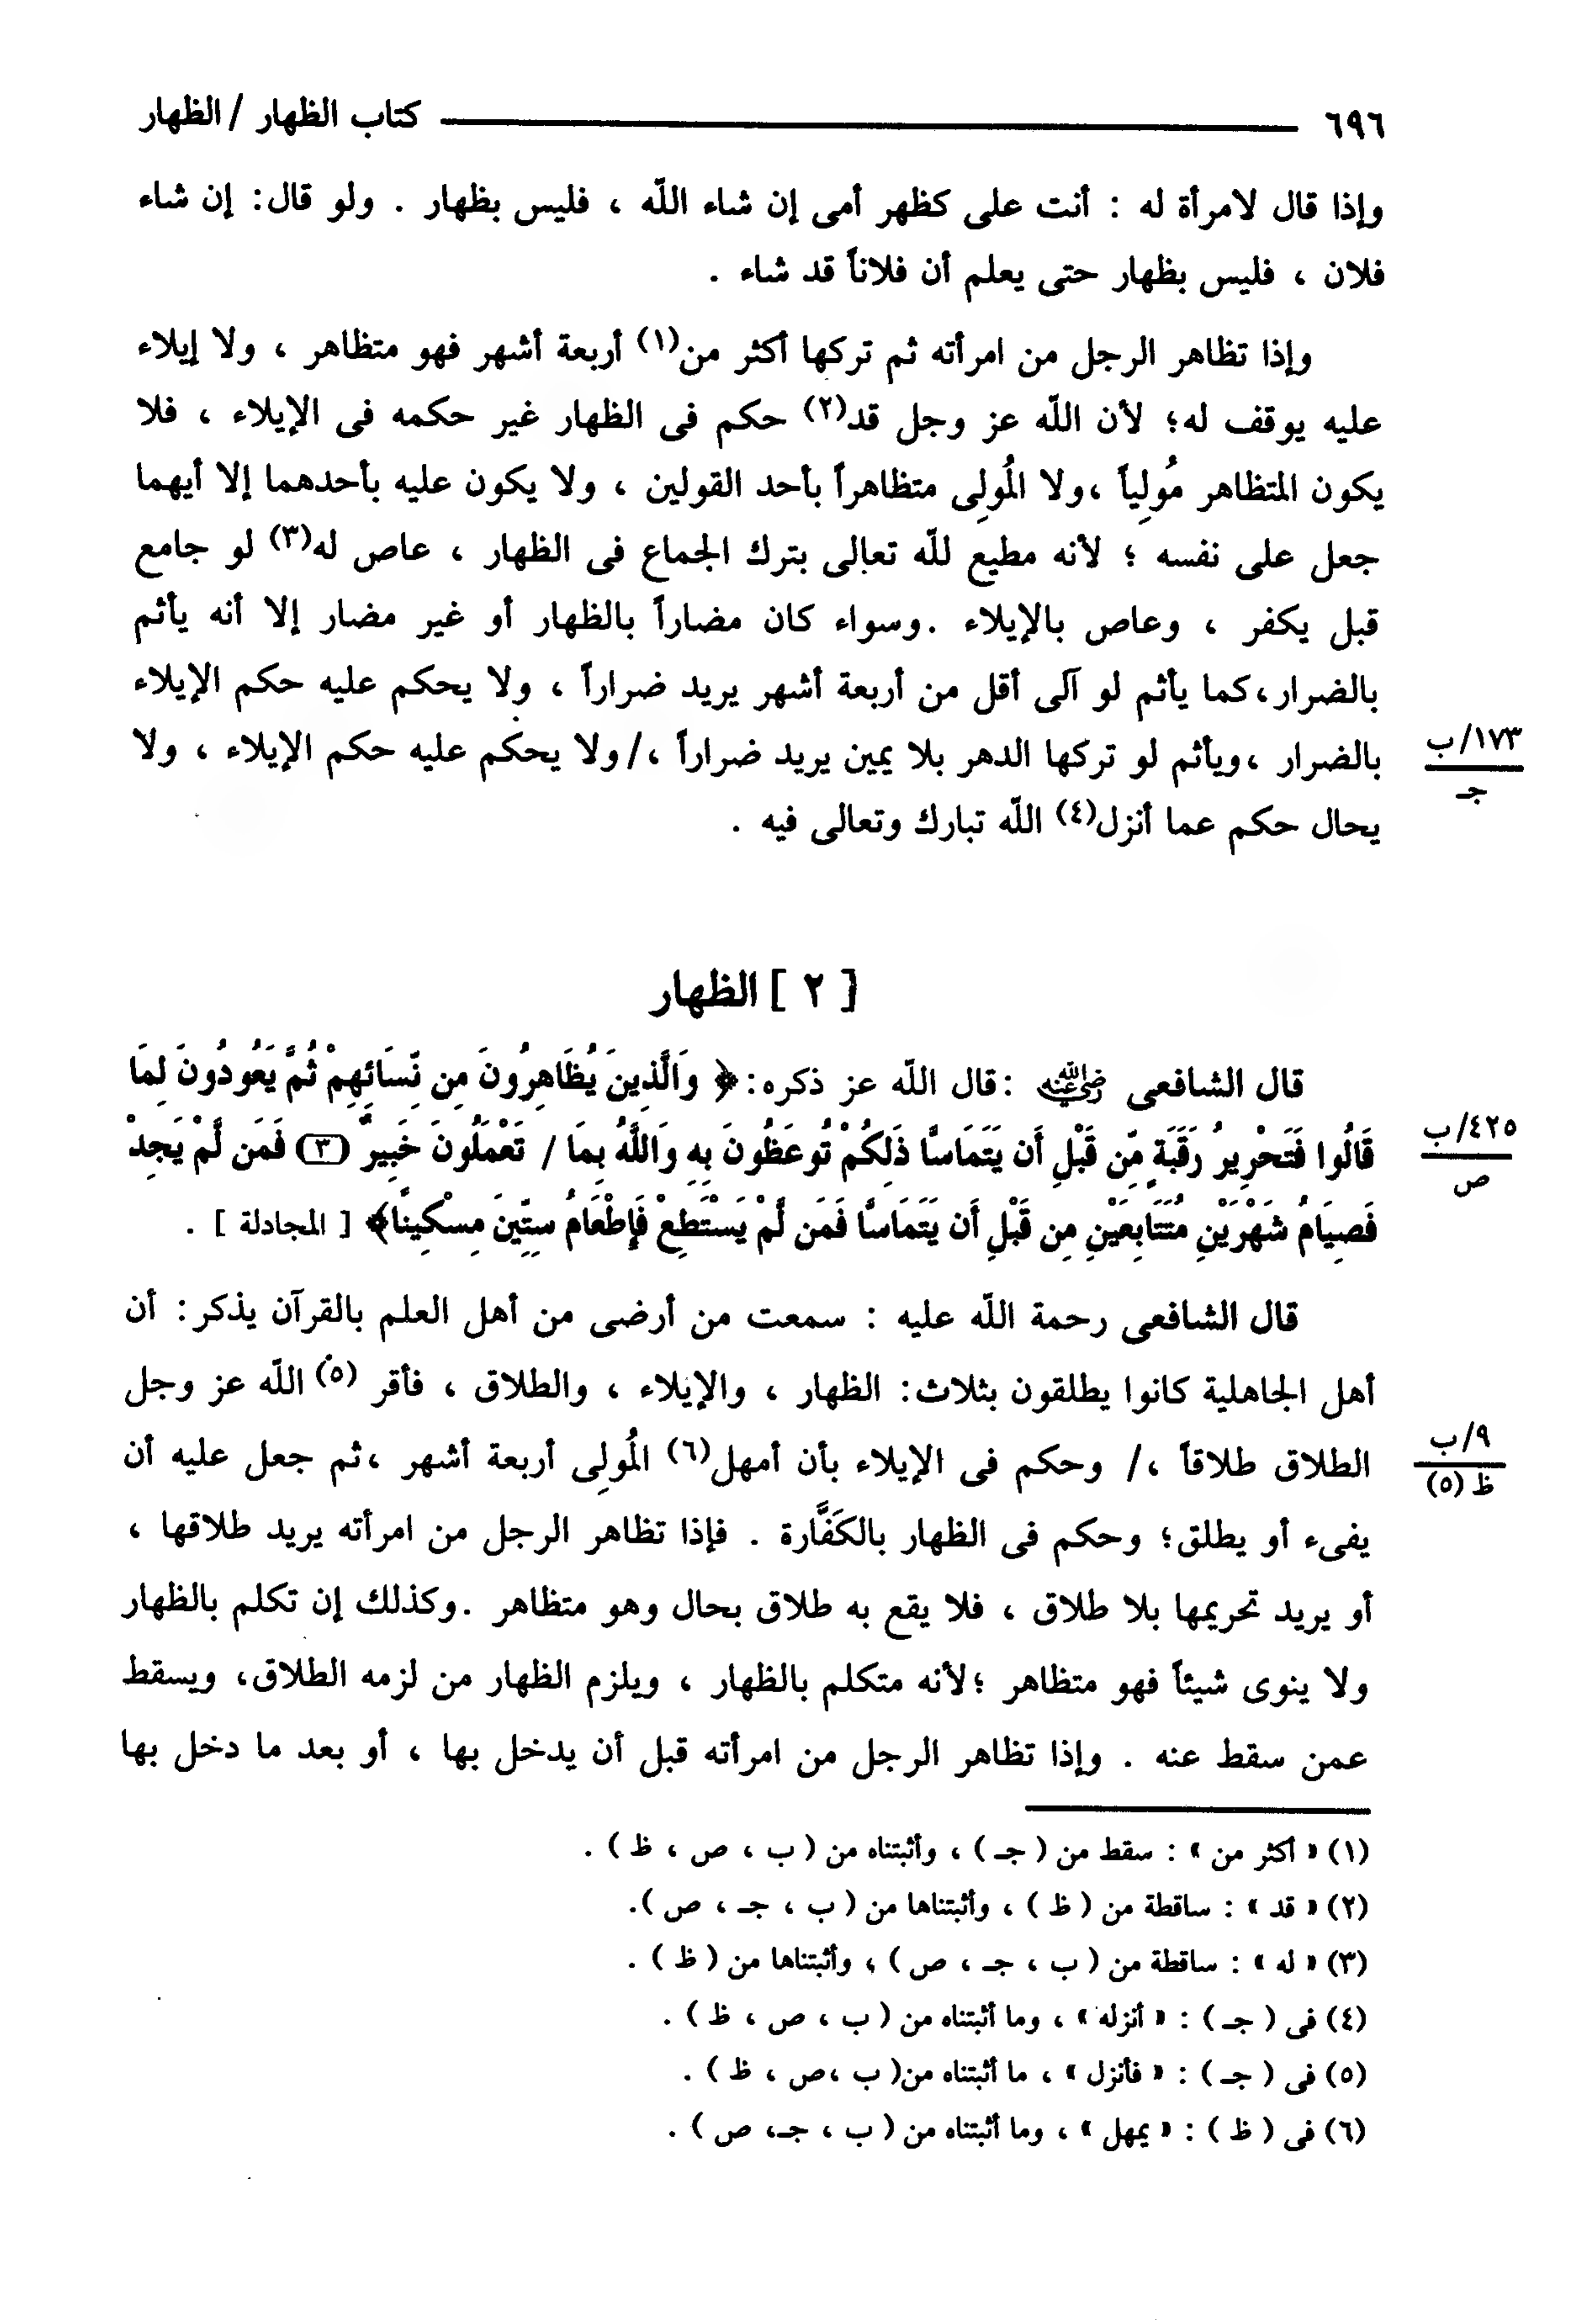 ٦٩٦ كتاب الظهار / الظهار
وإذا قال لامرأة له : أنت على كظهر أمى إن شاء الله ، فليس بظهار . ولو قال: إن شاء
فلان ، فليس بظهار حتى يعلم أن فلاناً قد شاء .
وإذا تظاهر الرجل من امرأته ثم تركها أكثر من(١) أربعة أشهر فهو متظاهر ، ولا إيلاء
عليه يوقف له؛ لأن الله عز وجل قد(٢) حكم فى الظهار غير حكمه فى الإيلاء ، فلا
يكون المتظاهر مُولِياً ،ولا المُولِى متظاهراً بأحد القولين ، ولا يكون عليه بأحدهما إلا أيهما
جعل على نفسه ؛ لأنه مطيع لله تعالى بترك الجماع فى الظهار ، عاص له(٣) لو جامع
قبل يكفر ، وعاص بالإيلاء .وسواء كان مضاراً بالظهار أو غير مضار إلا أنه يأثم
بالضرار،كما يأثم لو آلى أقل من أربعة أشهر يريد ضراراً ، ولا يحكم عليه حكم الإيلاء
بالضرار ،ويأثم لو تركها الدهر بلا يمين يريد ضراراً ،/ولا يحكم عليه حكم الإيلاء ، ولا
١٧٣/ب
جـ
يحال حكم عما أنزل(٤) الله تبارك وتعالى فيه .
[ ٢ ] الظهار
قال الشافعى رضي الله عنه :قال الله عز ذكره: ﴿ وَالَّذِينَ يُظَاهِرُونَ مِن نِّسَائِهِمْ ثُمَّ يَعُودُونَ لِمَا
قَالُوا فَتَحْرِيرُ رَقَبَةٍ مِّن قَبْلِ أَن يَتَمَاسَّا ذَلِكُمْ تُوعَظُونَ بِهِ وَاللَّهُ بِمَا / تَعْمَلُونَ خَبِيرٌ (٣) فَمَن لَّمْ يَجِدْ
٤٢٥/ب
ص
فَصِيَامُ شَهْرَيْنِ مُتَتَابِعَيْنِ مِن قَبْلِ أَن يَتَمَاسَّا فَمَن لَّمْ يَسْتَطِعْ فَإِطْعَامُ سِتِّينَ مِسْكِينًا﴾ [ المجادلة ] .
قال الشافعى رحمة الله عليه : سمعت من أرضى من أهل العلم بالقرآن يذكر: أن
أهل الجاهلية كانوا يطلقون بثلاث: الظهار ، والإيلاء ، والطلاق ، فأقر (٥) الله عز وجل
الطلاق طلاقاً ،/ وحكم فى الإيلاء بأن أمهل(٦) المُولِى أربعة أشهر ،ثم جعل عليه أن
٩/ب
ظ (٥)
يفىء أو يطلق؛ وحكم فى الظهار بالكَفَّارة . فإذا تظاهر الرجل من امرأته يريد طلاقها ،
أو يريد تحريمها بلا طلاق ، فلا يقع به طلاق بحال وهو متظاهر .وكذلك إن تكلم بالظهار
ولا ينوى شيئاً فهو متظاهر ؛لأنه متكلم بالظهار ، ويلزم الظهار من لزمه الطلاق، ويسقط
عمن سقط عنه . وإذا تظاهر الرجل من امرأته قبل أن يدخل بها ، أو بعد ما دخل بها
(١) « أكثر من » : سقط من ( جـ ) ، وأثبتناه من ( ب ، ص ، ظ ) .
(٢) « قد » : ساقطة من ( ظ ) ، وأثبتناها من ( ب ، جـ ، ص ).
(٣) « له » : ساقطة من ( ب ، جـ ، ص ) ، وأثبتناها من ( ظ ) .
(٤) فى ( جـ ) : « أنزله » ، وما أثبتناه من ( ب ، ص ، ظ ) .
(٥) فى ( جـ ) : « فأنزل » ، ما أثبتناه من( ب ،ص ، ظ ) .
(٦) فى ( ظ ) : « يمهل » ، وما أثبتناه من ( ب ، جـ، ص ) .